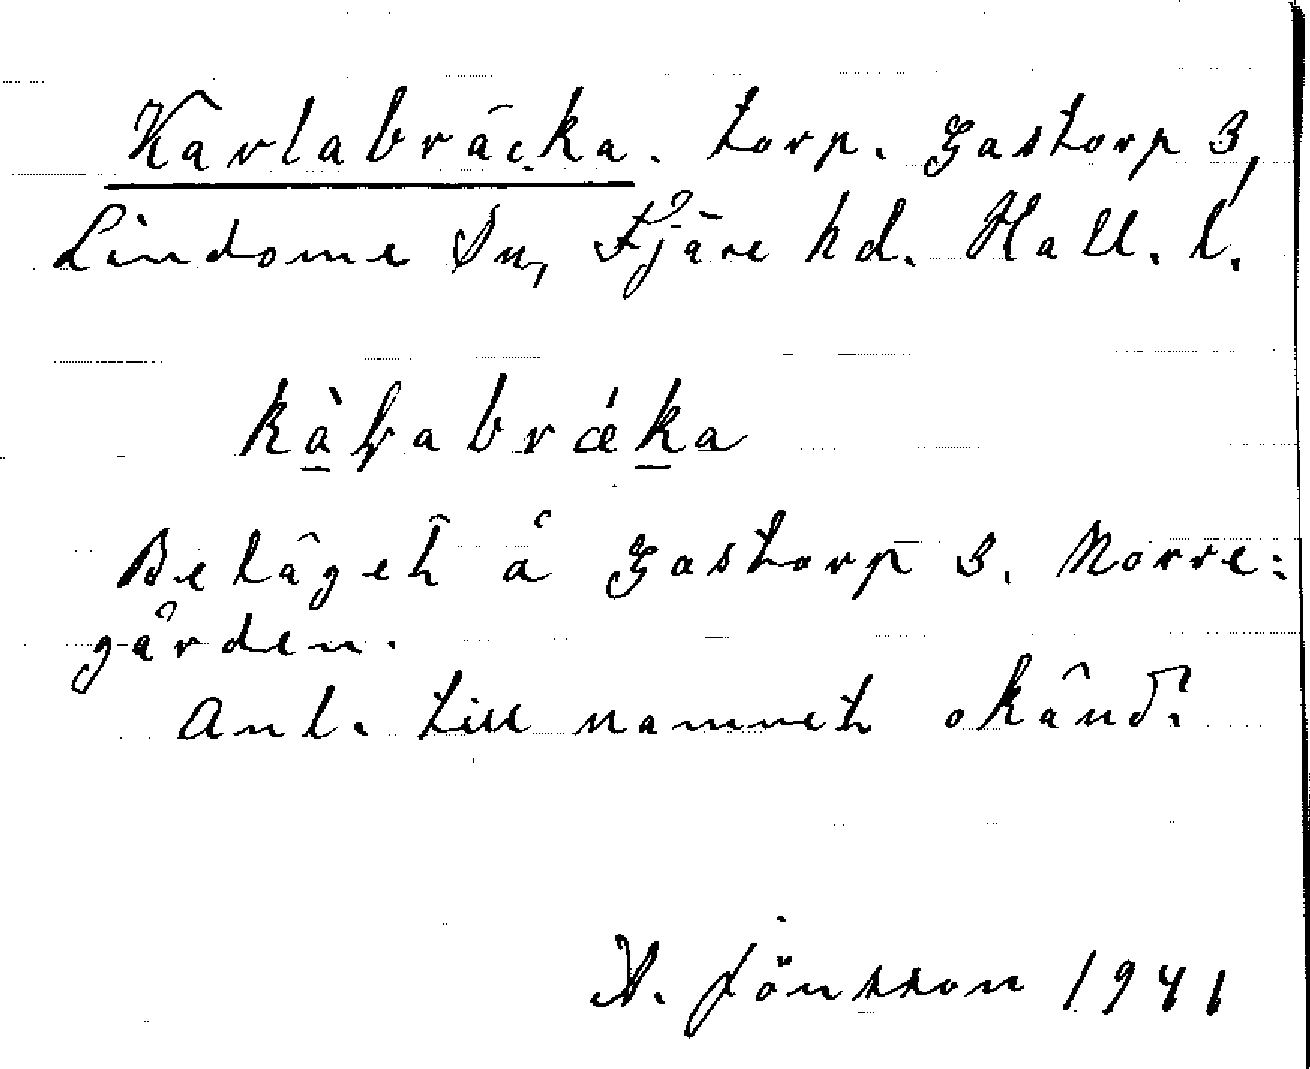 Karlabräcka. torp. Gastorp 3,
Lindome Sn, Fjäre hd. Hall. l.
Beläget å Gastorp 3. Norre-
gården.
Anl. till namnet okänd.
A. Jönsson 1941